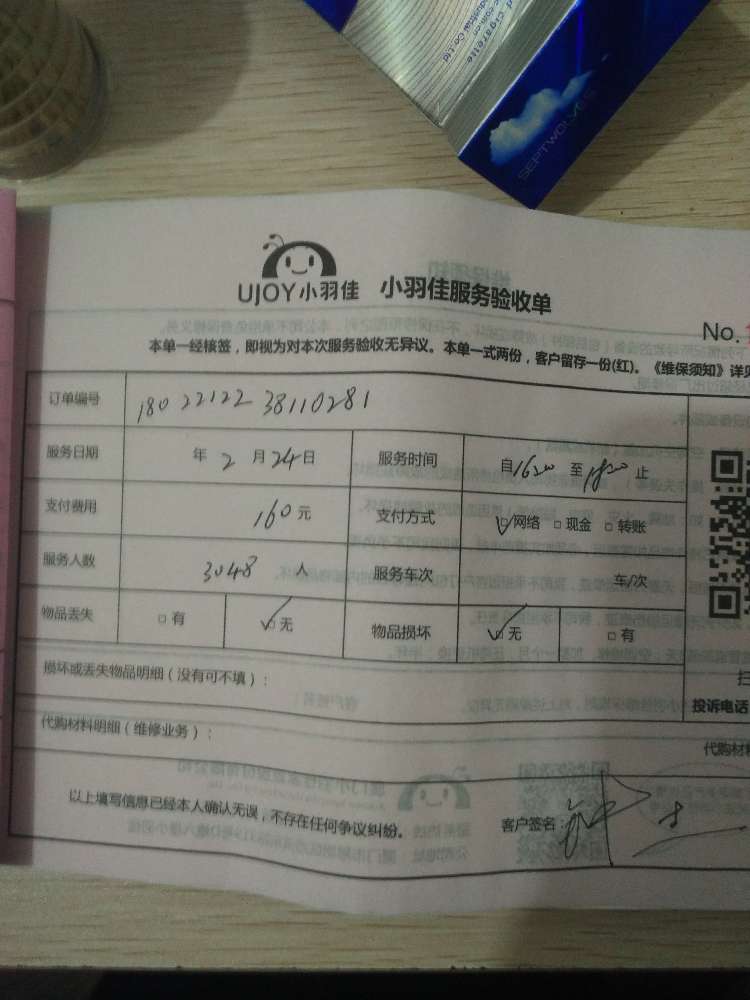 d cigarette
dustrial Co.,Ltd
SEPTWOLVES
UJOY小羽佳 小羽佳服务验收单
No.
本单一经核签，即视为对本次服务验收无异议。本单一式两份，客户留存一份(红)。《维保须知》详见
订单编号 180 22122 38110281
服务日期 年 2 月 24 日 服务时间 自1620 至1820 止
支付费用 160 元 支付方式 ☑网络 □现金 □转账
服务人数 3048 人 服务车次 车/次
物品丢失 □有 ☑无 物品损坏 ☑无 □有
损坏或丢失物品明细（没有可不填）：
扫
投诉电话
代购材料明细（维修业务）：
代购材料
以上填写信息已经本人确认无误，不存在任何争议纠纷。
客户签名：